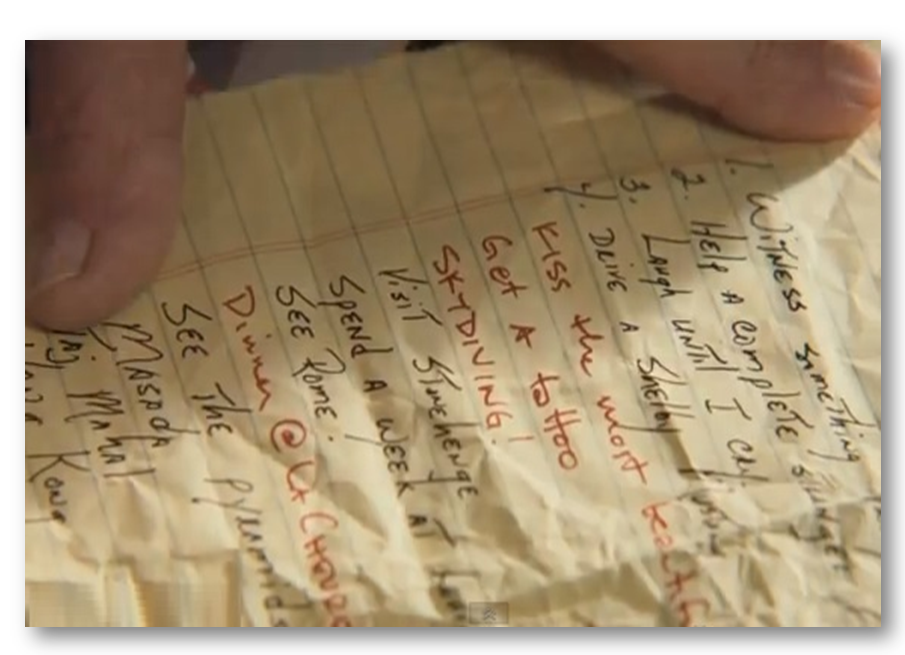 1. Witness something
2. Help A complete stranger
3. Laugh until I cry
4. Drive a Shelby
Kiss the most
Get A tattoo
SKYDIVING!
Visit Stonehenge
Spend A week AT
See Rome.
Dinner @ La
See The pyramids
Taj Mahal
Kong